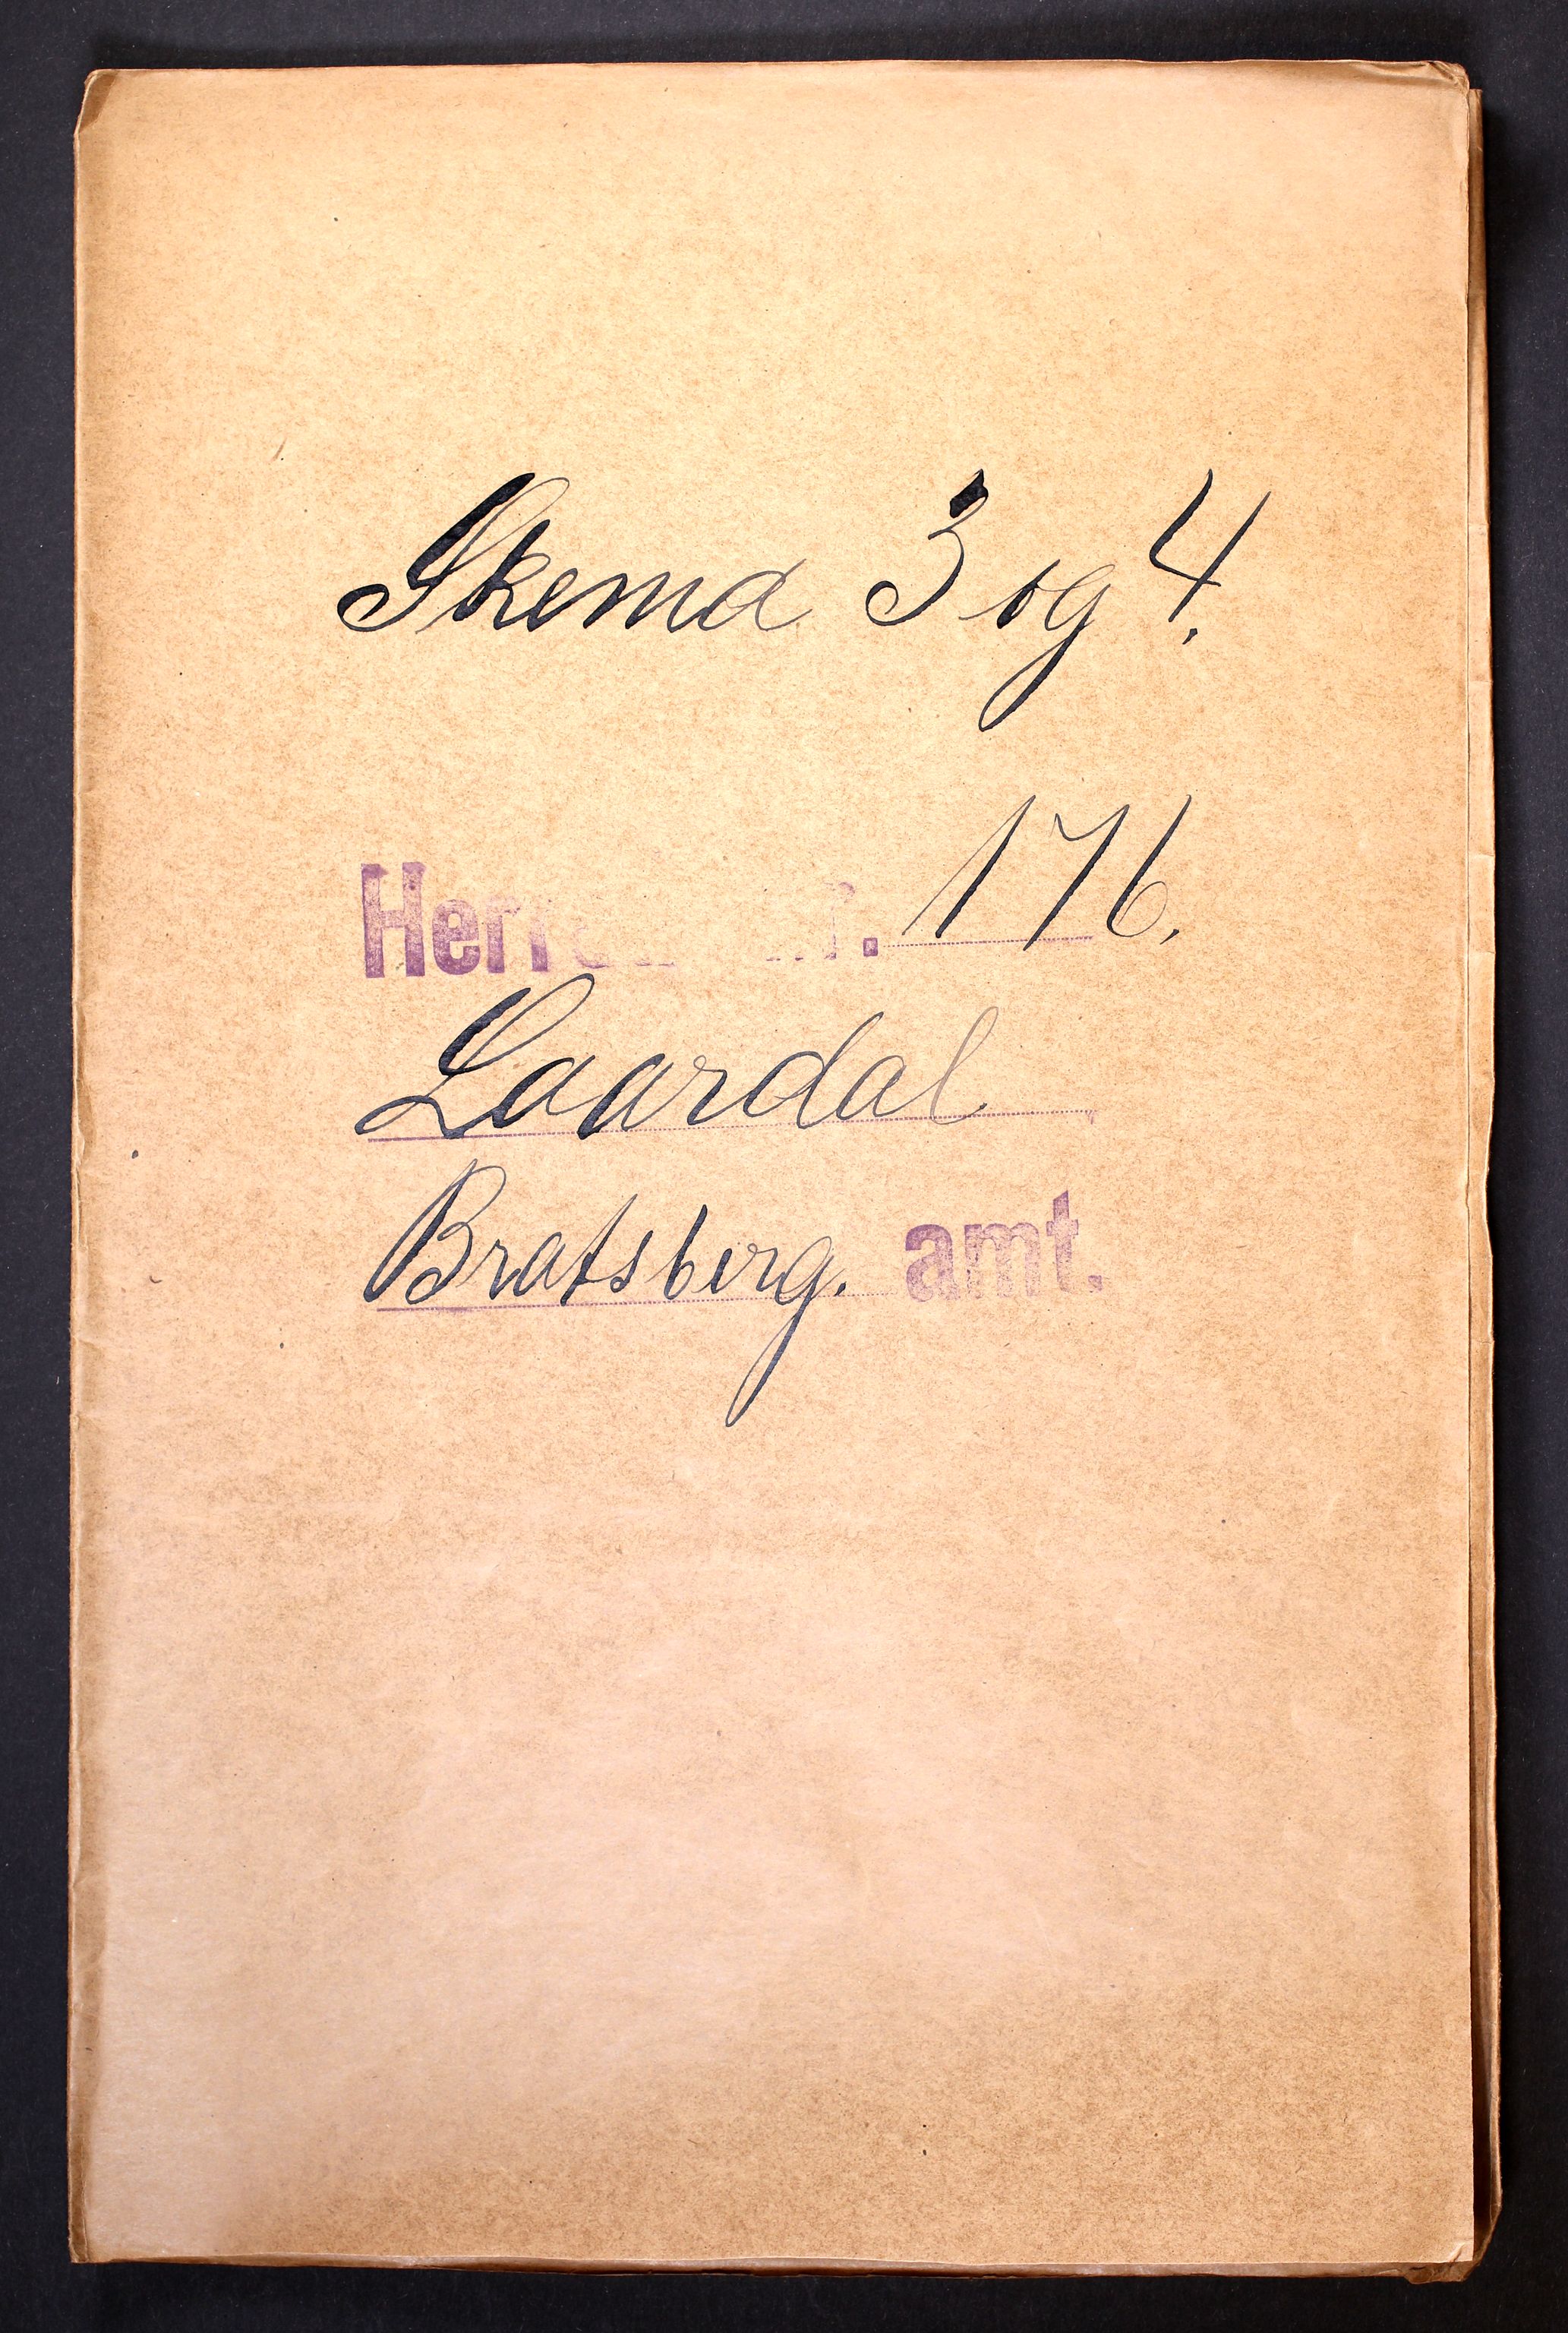 Skema 3 og 4.
Herred nr. 176.
Laardal
Bratsberg. amt.